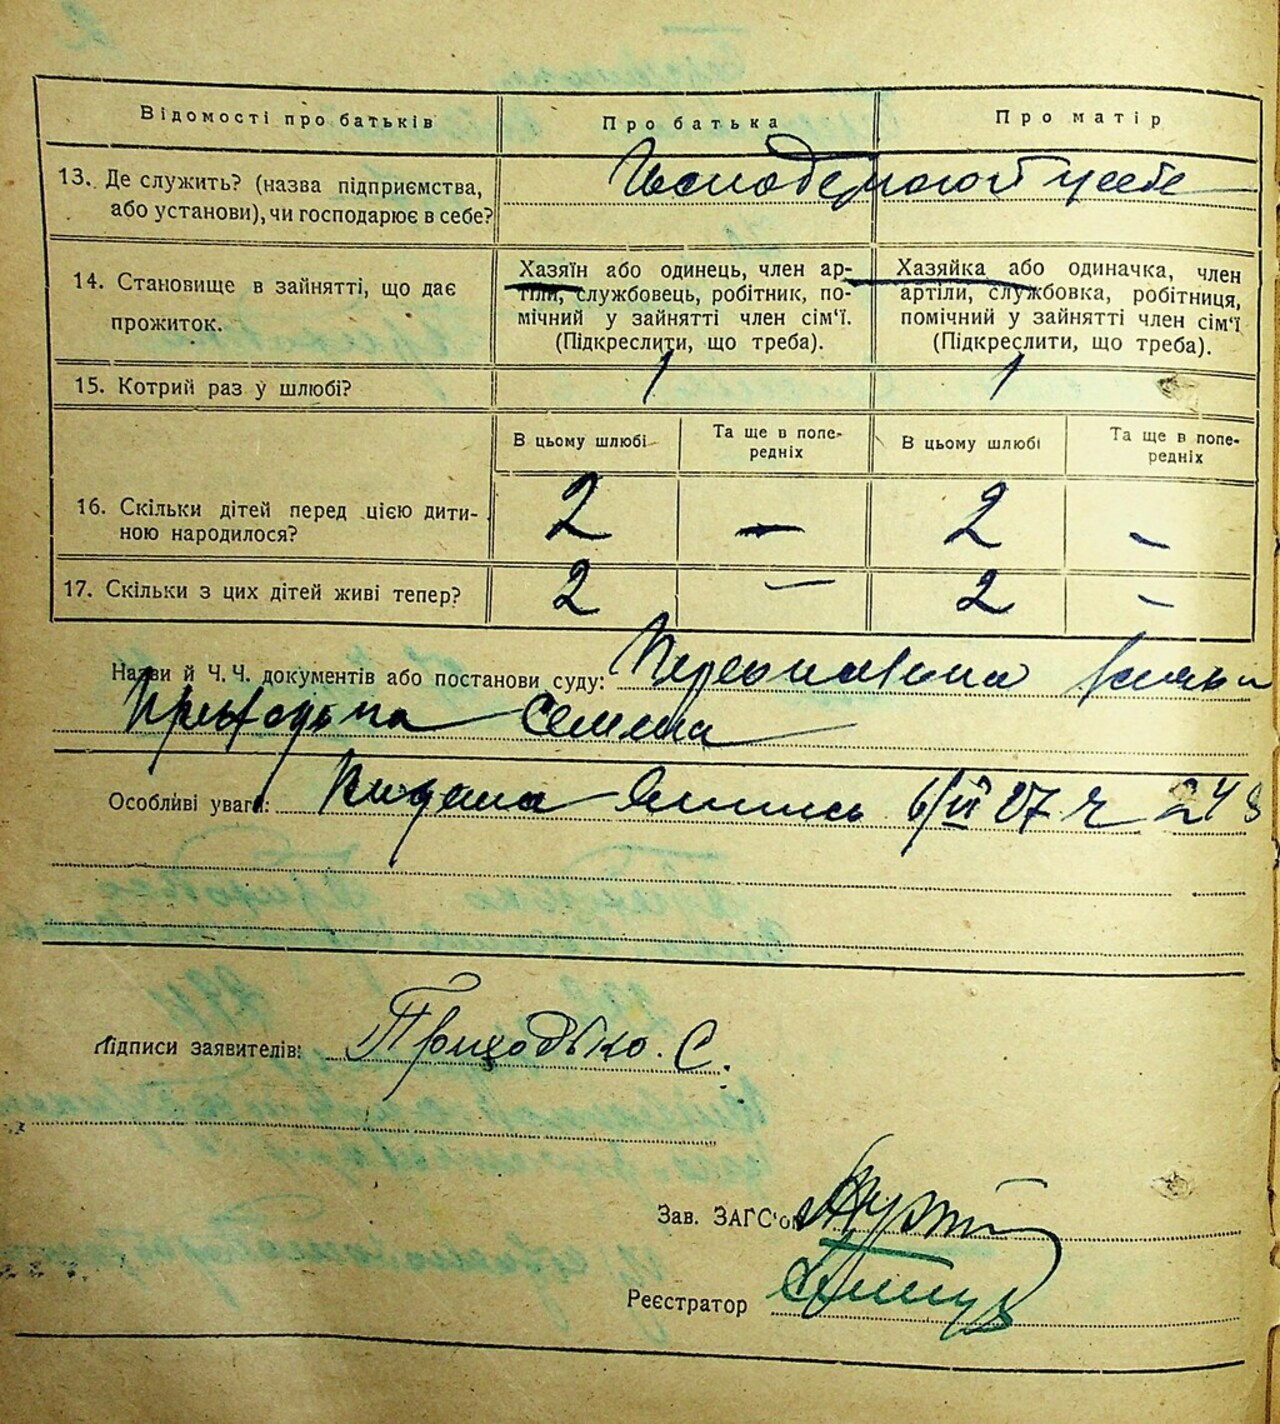 Відомості про батьків Про батька Про матір
13. Де служить? (назва підприємства, або установи), чи господарює в себе?
14. Становище в зайнятті, що дає прожиток.
Хазяїн або одинець, член ар-
тіли, службовець, робітник, по-
мічний у зайнятті член сім'ї.
(Підкреслити, що треба).
Хазяйка або одиначка, член
артіли, службовка, робітниця,
помічний у зайнятті член сім'ї
(Підкреслити, що треба).
15. Котрий раз у шлюбі? 1 1
В цьому шлюбі Та ще в попе-
редніх В цьому шлюбі Та ще в попе-
редніх
16. Скільки дітей перед цією дити-
ною народилося? 2 — 2 –
17. Скільки з цих дітей живі тепер? 2 – 2 –
Назви й Ч.Ч. документів або постанови суду:
Семена
Особливі уваги: Видана
Підписи заявителів: Приходько. С.
Зав. ЗАГС'ом
Реєстратор